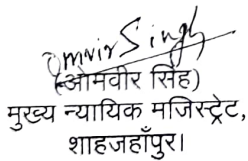 Omvir Singh
(ओमवीर सिंह)
मुख्य न्यायिक मजिस्ट्रेट,
शाहजहाँपुर।